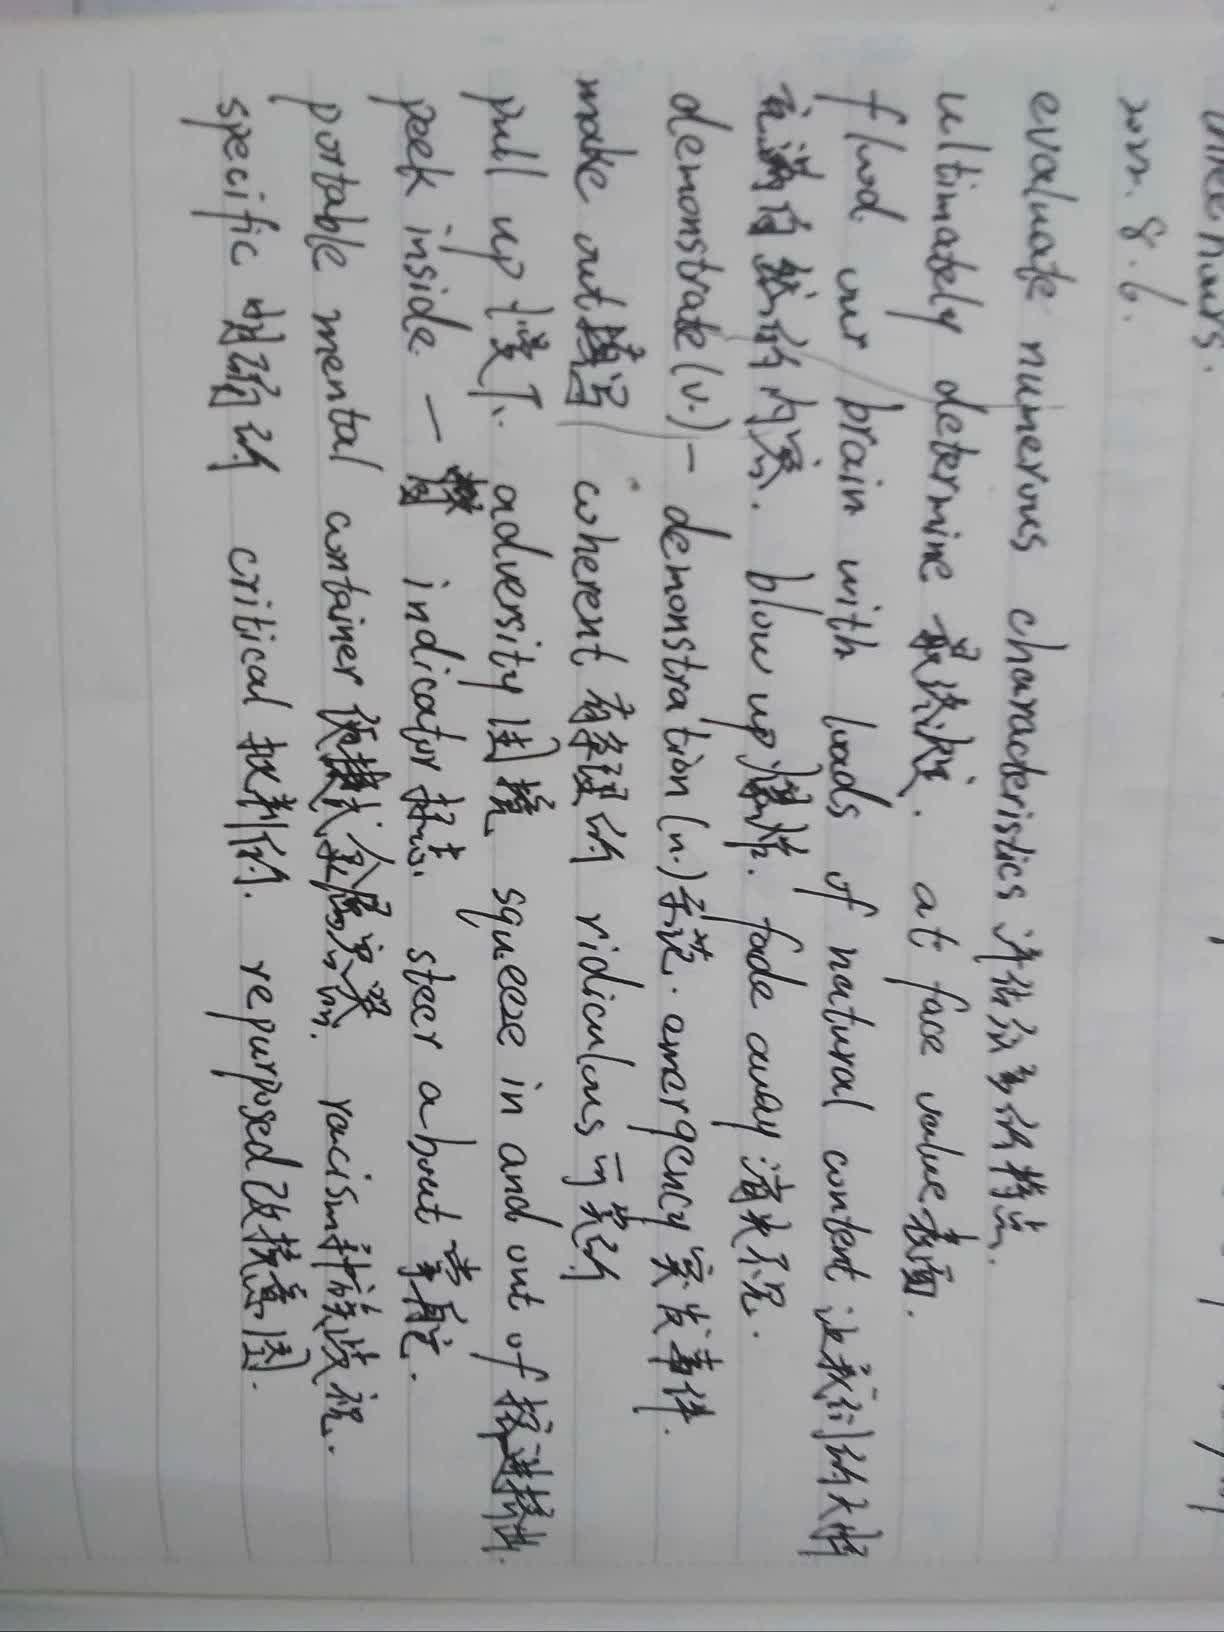 hours.
8.6.
evaluate numerous characteristics 评估很多的特点.
ultimately determine 最终决定. at face value 表面.
flood our brain with loads of natural content 让我们的大脑
充满自然的内容. blow up 爆炸. fade away 消失不见.
demonstrate (v.) - demonstration (n.) 示范. emergency 突发事件.
make out 填写 coherent 有条理的 ridiculous 可笑的
pull up 慢下. adversity 困境 squeeze in and out of 挤进挤出.
peek inside 一窥 indicator 标志. steer about 掌舵.
portable mental container 便携式 racism 种族歧视.
specific 明确的 critical 批判的. repurposed 改换意图.